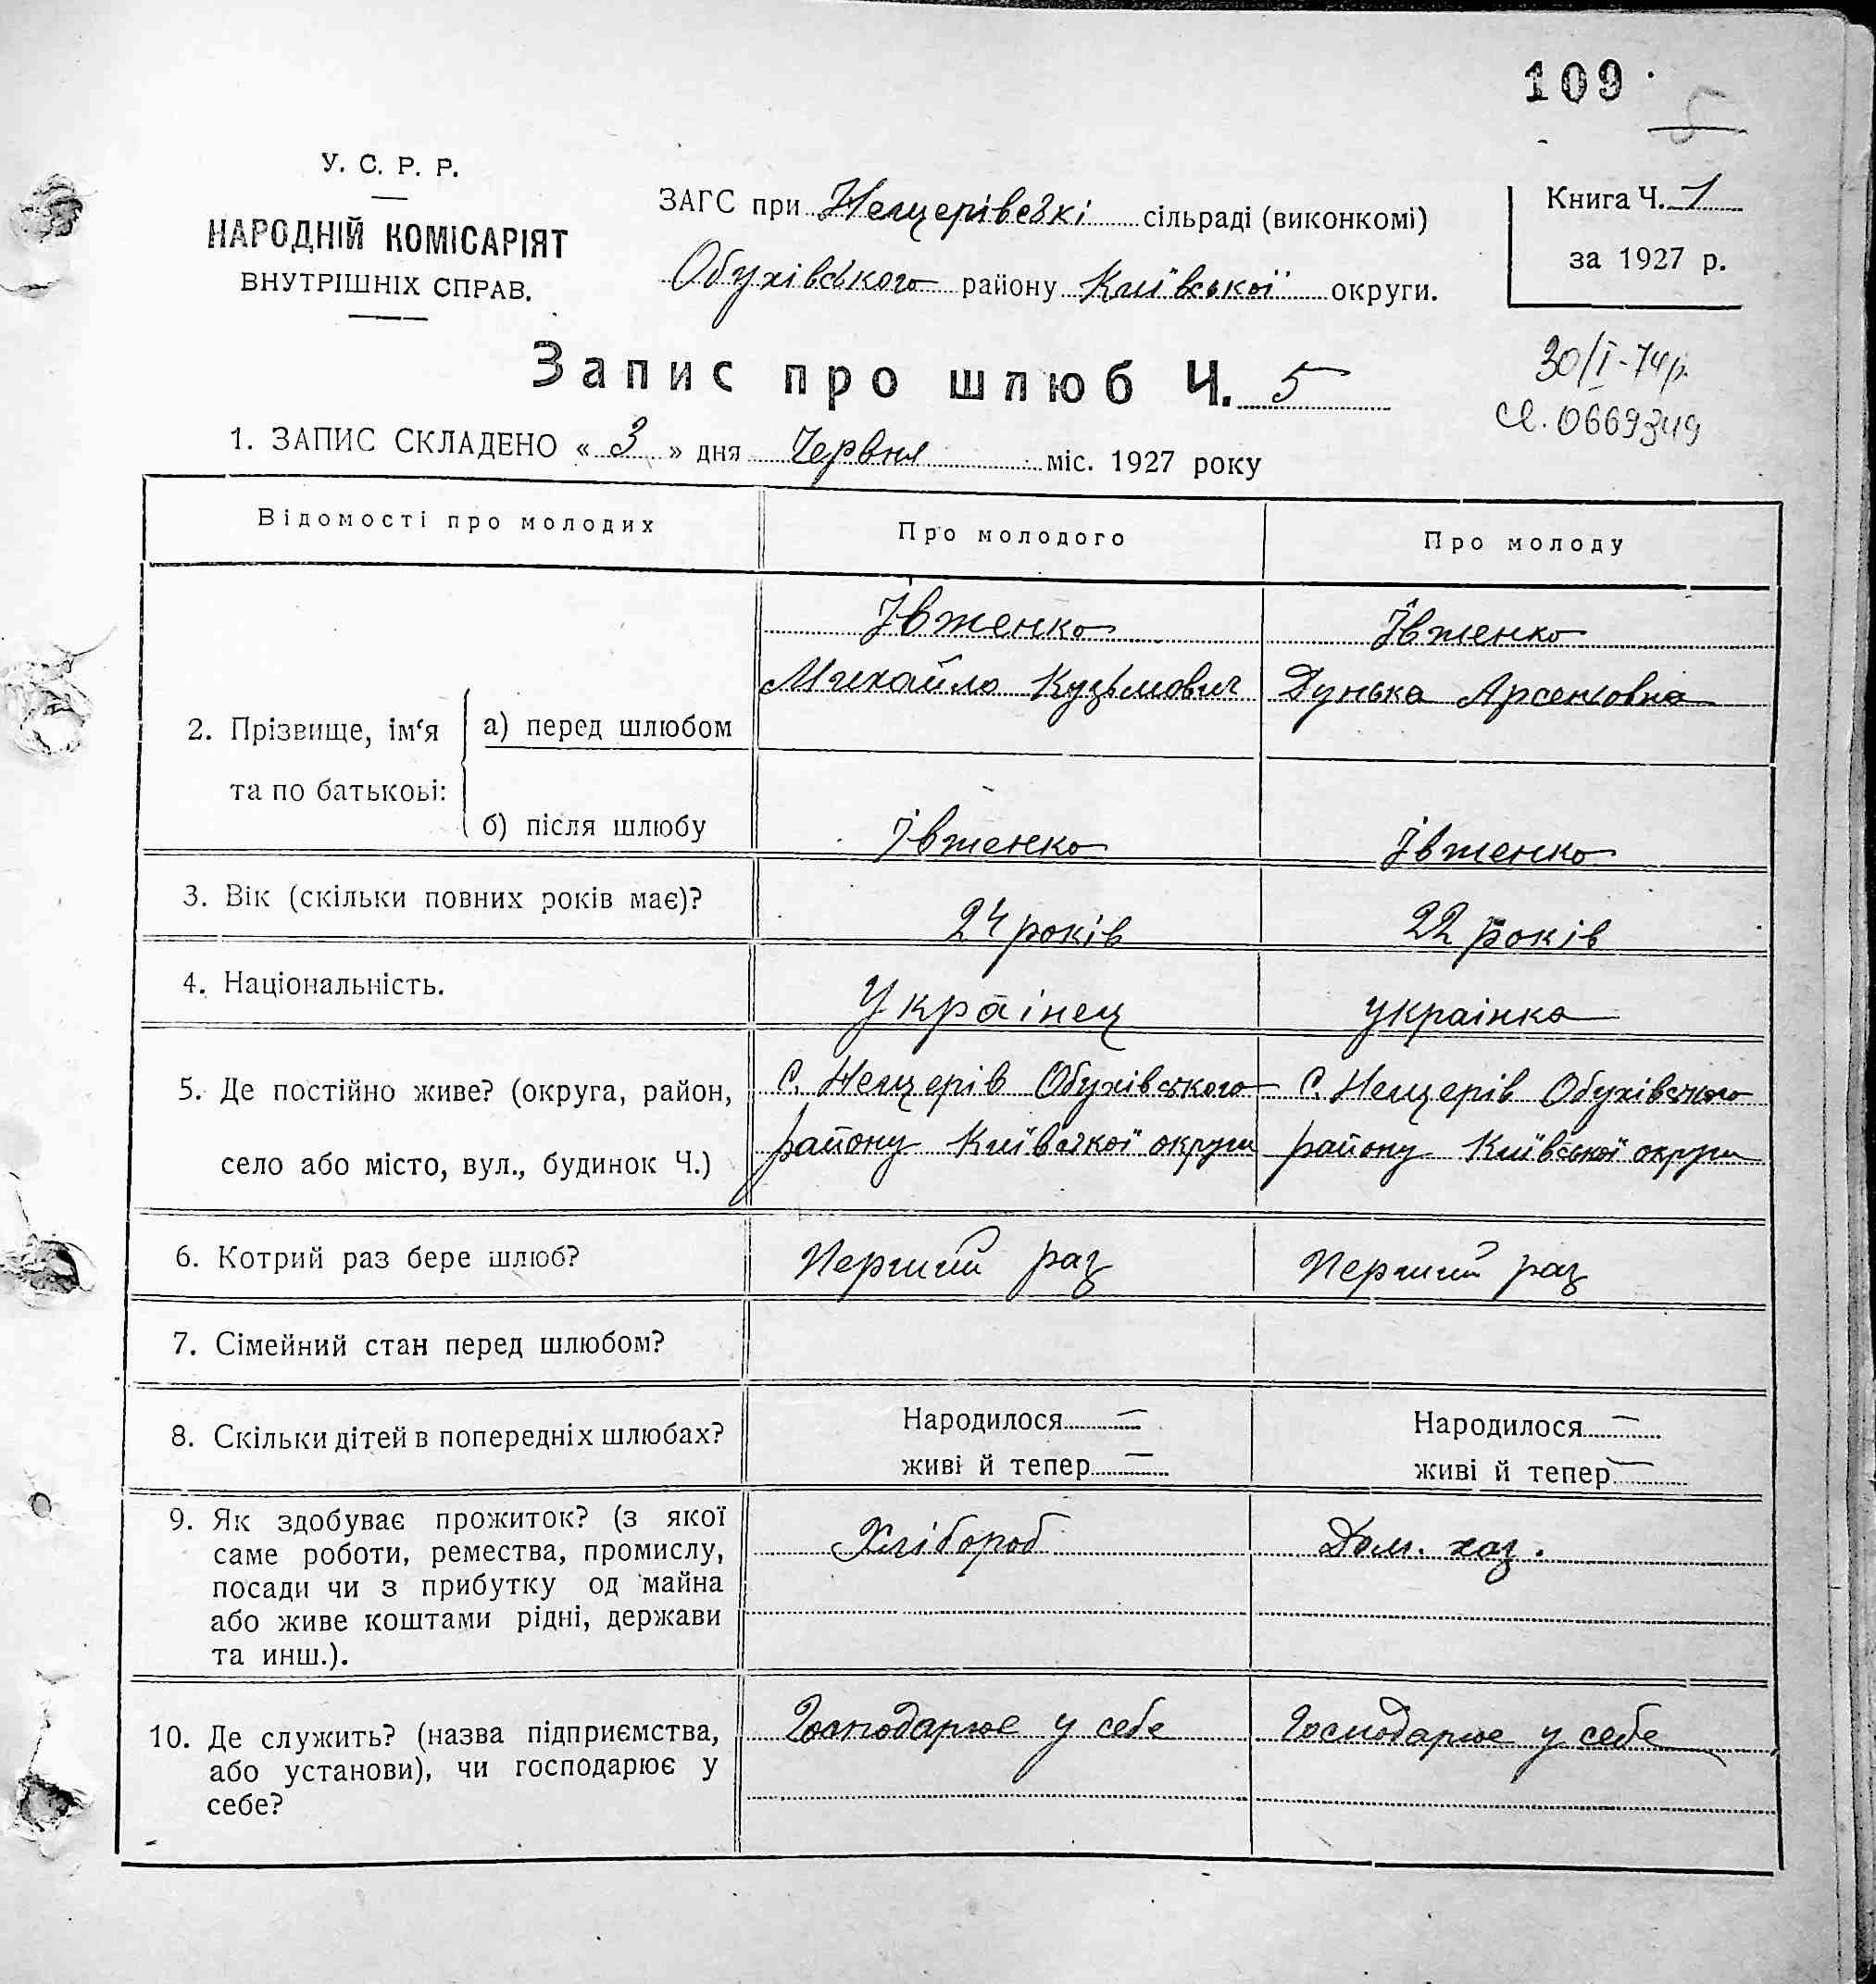 109
5
У. С. Р. Р.
НАРОДНІЙ КОМІСАРІЯТ
ВНУТРІШНІХ СПРАВ.
ЗАГС при Нещерівські сільраді (виконкомі)
Обухівського району Київської округи.
Книга Ч. 1
за 1927 р.
Запис про шлюб Ч. 5
30/I-74р.
св. 0669349
1. ЗАПИС СКЛАДЕНО « 3 » дня Червня міс. 1927 року
Відомості про молодих Про молодого Про молоду
Івженко Івженко
Михайло Кузьмович Дунька Арсентовна
2. Прізвище, ім‘я а) перед шлюбом
та по батькові:
б) після шлюбу Івженко Івженко
3. Вік (скільки повних років має)? 24 років 22 років
4. Національність. Украінец украінка
5. Де постійно живе? (округа, район, С. Нещерів Обухівського С. Нещерів Обухівського
село або місто, вул., будинок Ч.) району Київської округи району Київської округи
6. Котрий раз бере шлюб? Перший раз Перший раз
7. Сімейний стан перед шлюбом?
8. Скільки дітей в попередніх шлюбах? Народилося — Народилося —
живі й тепер — живі й тепер —
9. Як здобуває прожиток? (з якої Хлібороб Дом. хоз.
саме роботи, ремества, промислу,
посади чи з прибутку од майна
або живе коштами рідні, держави
та инш.).
10. Де служить? (назва підприємства, Господарює у себе Господарює у себе
або установи), чи господарює у
себе?